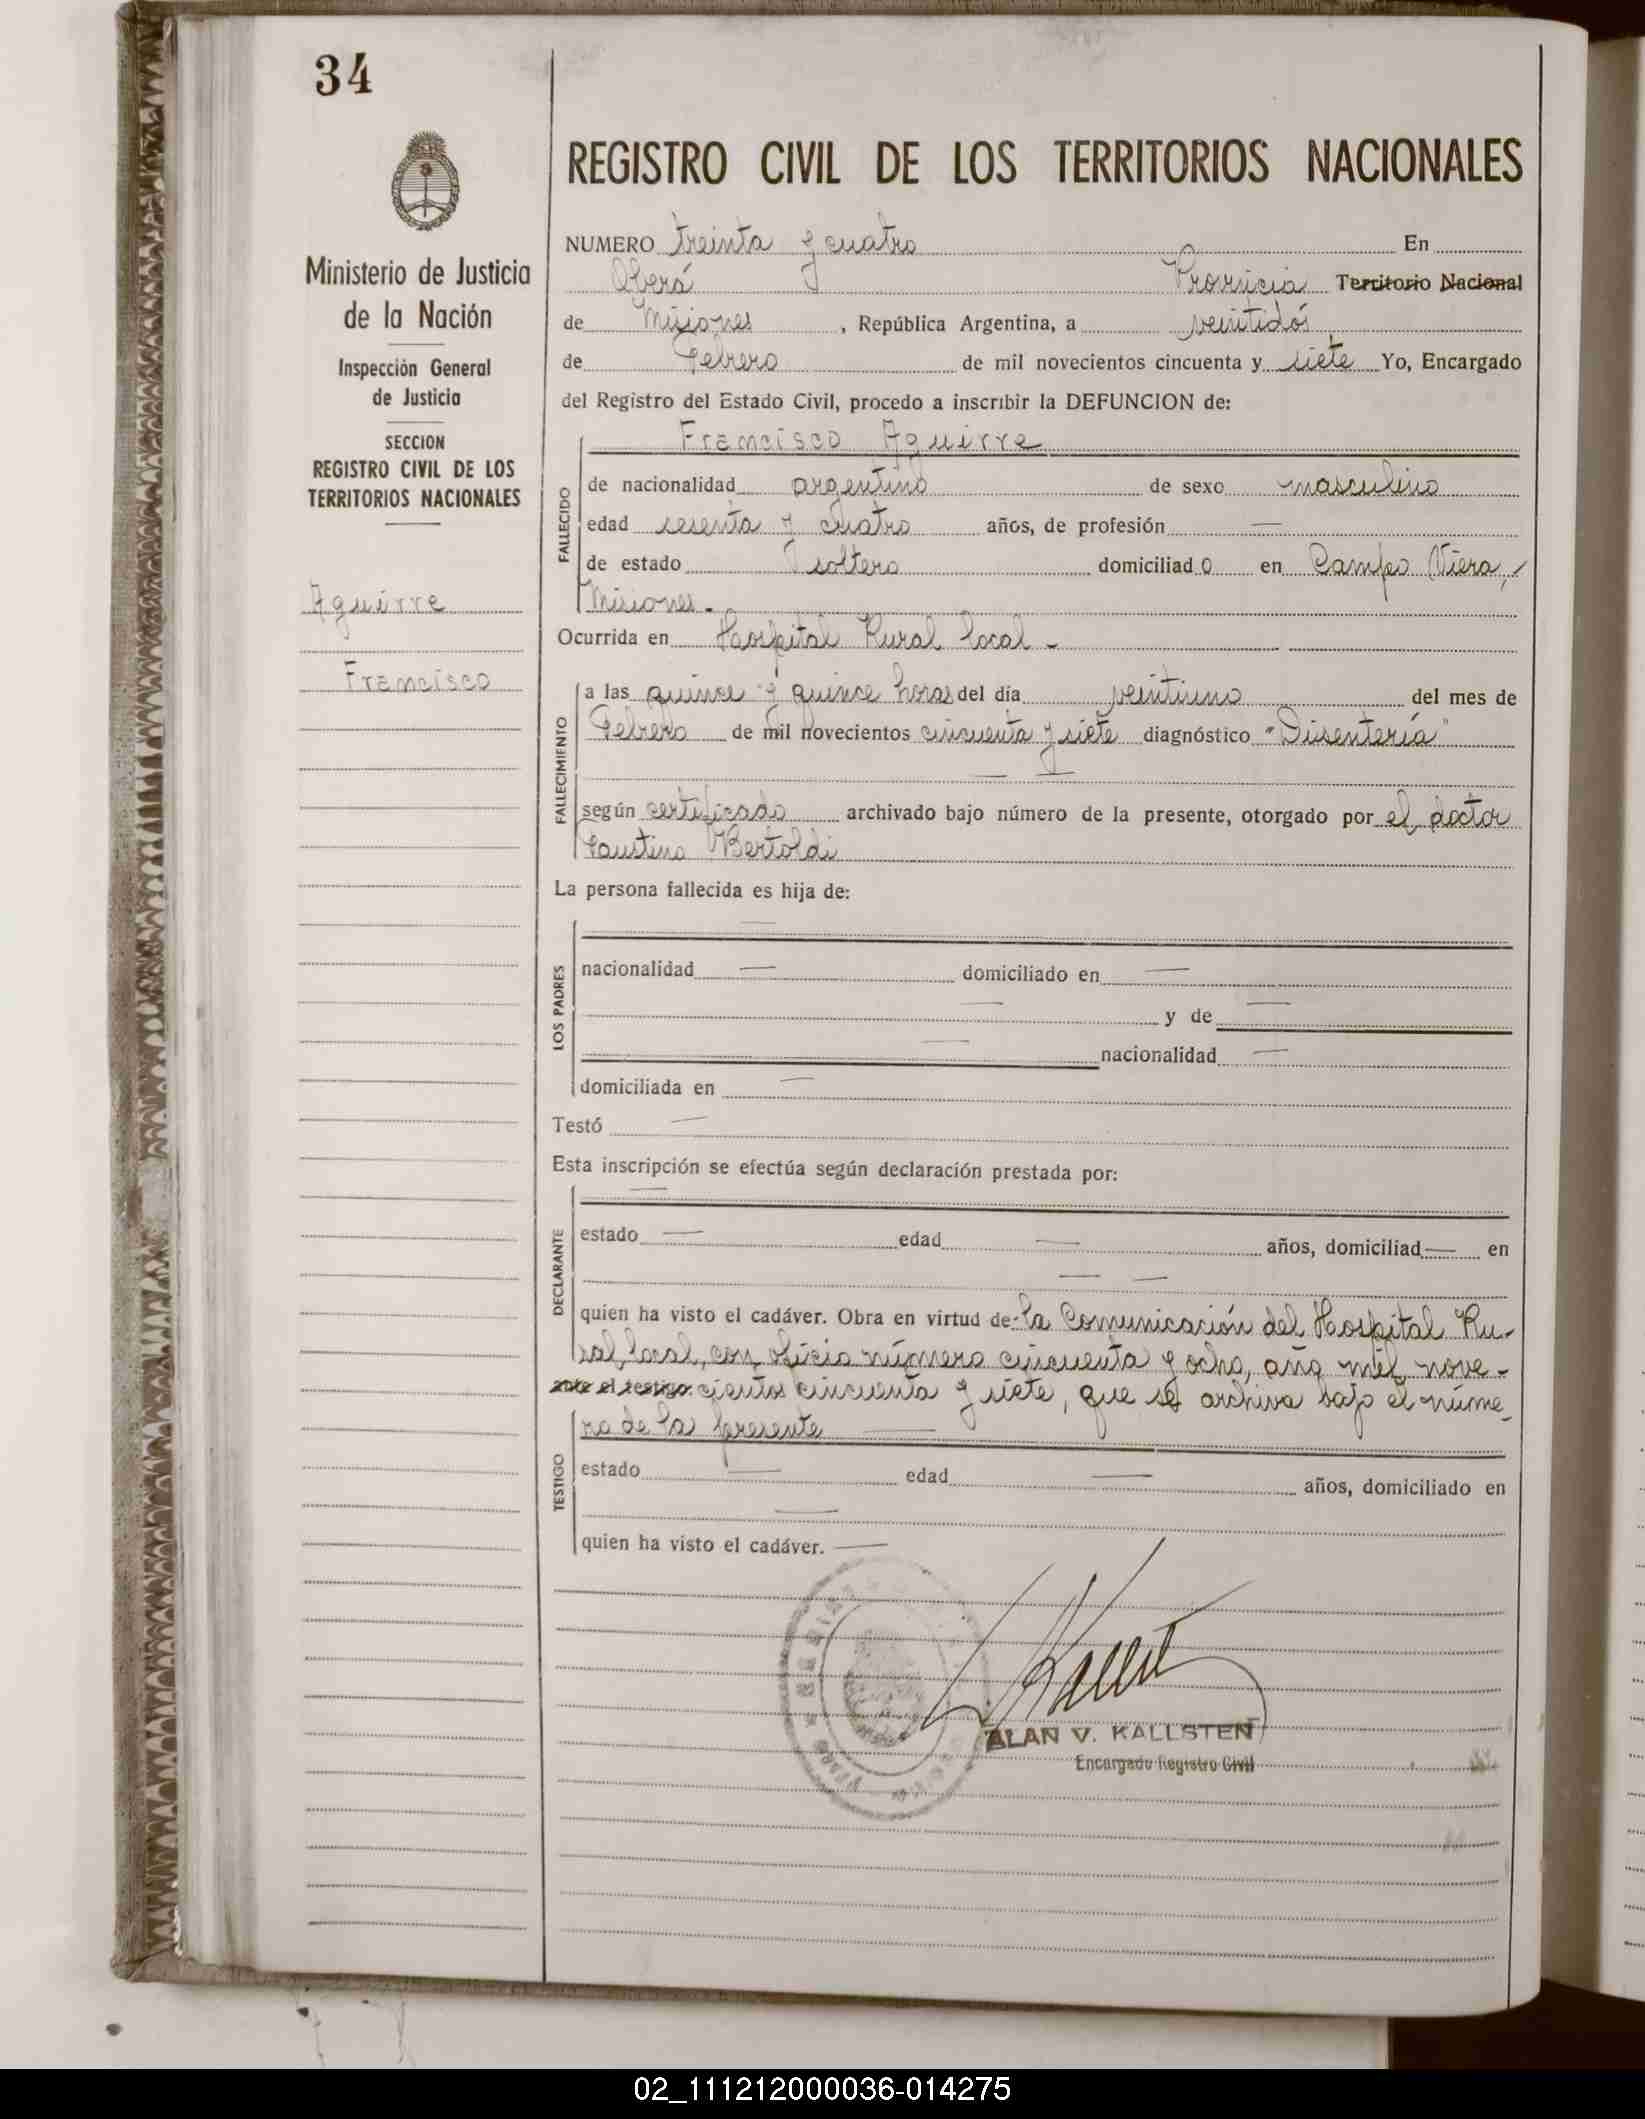 34
Ministerio de Justicia
de la Nación
Inspección General
de Justicia
SECCION
REGISTRO CIVIL DE LOS
TERRITORIOS NACIONALES
Aguirre
Francisco
REGISTRO CIVIL DE LOS TERRITORIOS NACIONALES
NUMERO treinta y cuatro En
Oberá Provincia Territorio Nacional
de Misiones, República Argentina, a veintidós
de Febrero de mil novecientos cincuenta y siete Yo, Encargado
del Registro del Estado Civil, procedo a inscribir la DEFUNCION de:
Francisco Aguirre
FALLECIDO
de nacionalidad argentino de sexo masculino
edad sesenta y cuatro años, de profesión —
de estado soltero domiciliado en Campo Viera,
Misiones.-
Ocurrida en Hospital Rural local -
FALLECIMIENTO
a las quince y quince horas del día veintiuno del mes de
Febrero de mil novecientos cincuenta y siete diagnóstico "Disentería"
— —
según certificado archivado bajo número de la presente, otorgado por el doctor
Faustino Bertoldi
La persona fallecida es hija de:
—
LOS PADRES
nacionalidad — domiciliado en —
— y de —
— nacionalidad —
domiciliada en —
Testó —
Esta inscripción se efectúa según declaración prestada por:
—
DECLARANTE
estado — edad — años, domiciliad — en
— —
quien ha visto el cadáver. Obra en virtud de la Comunicación del Hospital Ru-
ral local, con oficio número cincuenta y ocho, año mil nove-
ante el testigo: cientos cincuenta y siete, que se archiva bajo el núme-
ro de la presente —
TESTIGO
estado — edad — años, domiciliado en
—
quien ha visto el cadáver. —
ALAN V. KALLSTEN
Encargado Registro Civil
02_111212000036-014275